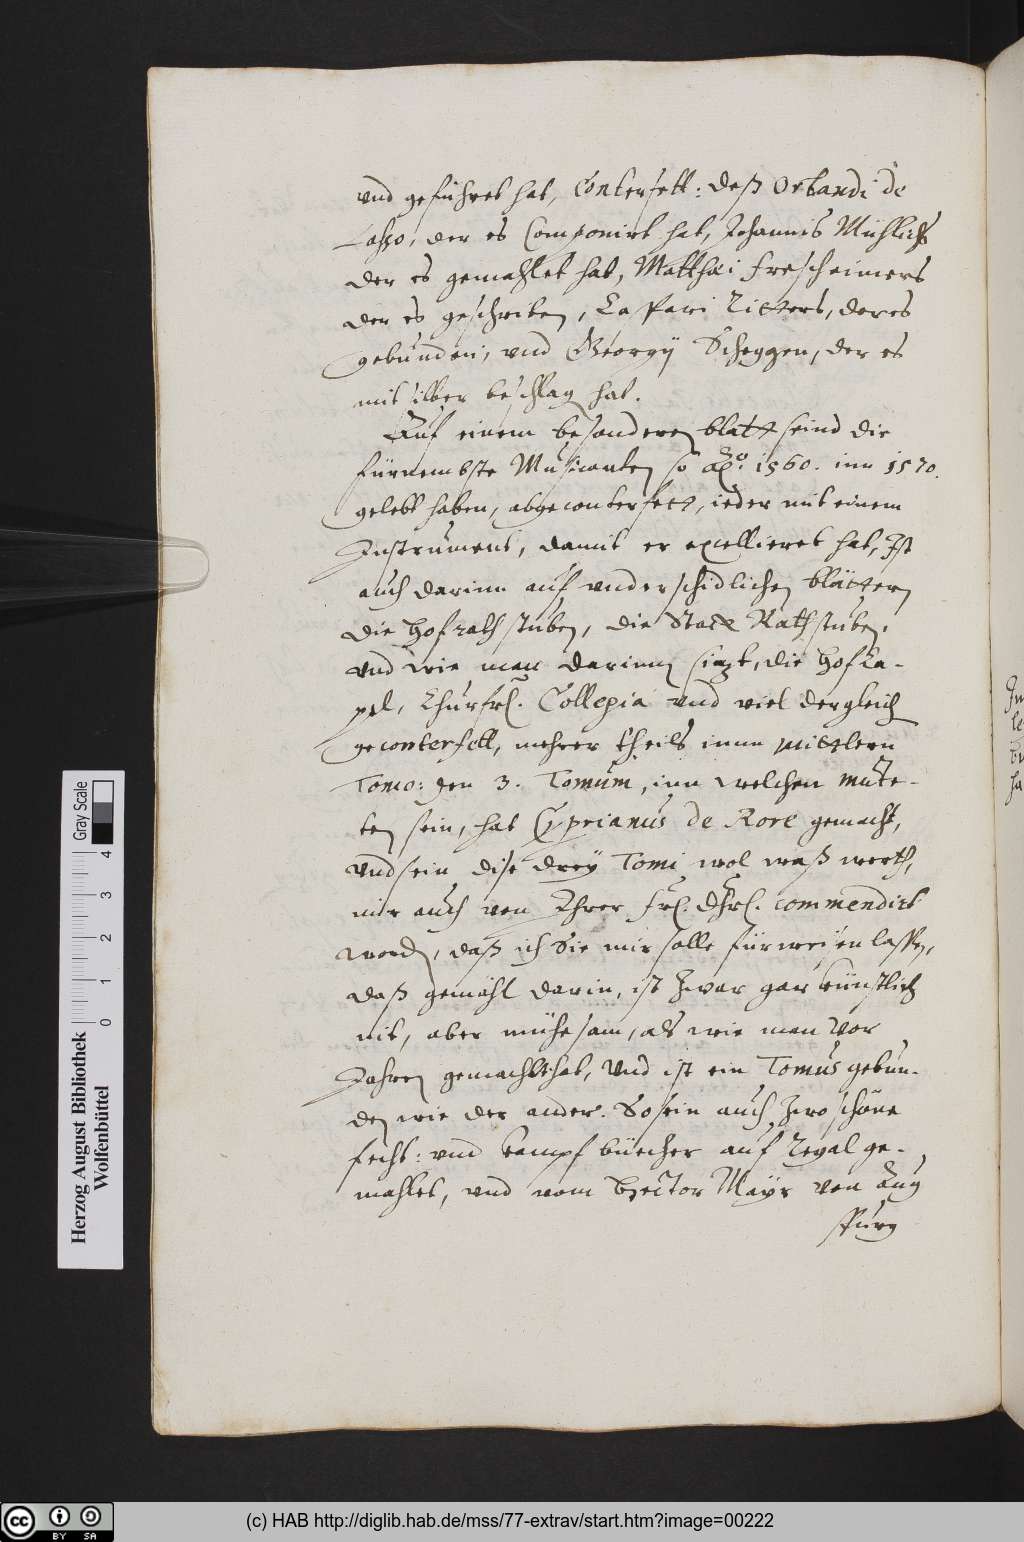 vnd geführet hat, Conterfett: deß Orlandi de
Lasso, der es Componirt hat, Johannis Mühlichs
der es gemahlet hat, Matthæi Freschaimers
der es geschriben, Caspari Ritters, der es
gebunden, vnd Georgÿ Scheggen, der es
mit silber beschlagen hat.
Auf einem besonderen blatt seind die
fürnembste Musicanten so A.o 1560. inn 1570.
gelebt haben, abgeconterfett, ieder mit einem
Instrument, damit er excellieret hat, Ist
auch darinn auf vnderschidlichen blättern
die Hofrathstuben, die Statt Rathstuben,
vnd wie man darinnen sizt, die HofCa-
pel, Churfrl. Collegia vnd viel dergleich
geconterfett, mehrer theils inn mittlern
Tomo: den 3. Tomum, inn welchen Mute-
ten sein, hat Cyprianus de Rore gemacht,
Vnd sein dise dreÿ Tomi wol waß werth,
mir auch von Ihrer frl. Dhrl. commendirt
worden, daß ich Sie mir solle fürweisen lassen,
daß gemähl darin, ist zwar gar künstlich
nit, aber mühesam, als wie man Vor
Jahren gemacht hat, Vnd ist ein Tomus gebun-
den wie der ander. So sein auch zwo schöne
fecht: vnd kampf büecher auf Regal ge-
mahlet, vnd vom Hector Mayr von Aug
spurg
Herzog August Bibliothek
Wolfenbüttel
0 1 2 3 4
Gray Scale
cc BY SA
(c) HAB http://diglib.hab.de/mss/77-extrav/start.htm?image=00222